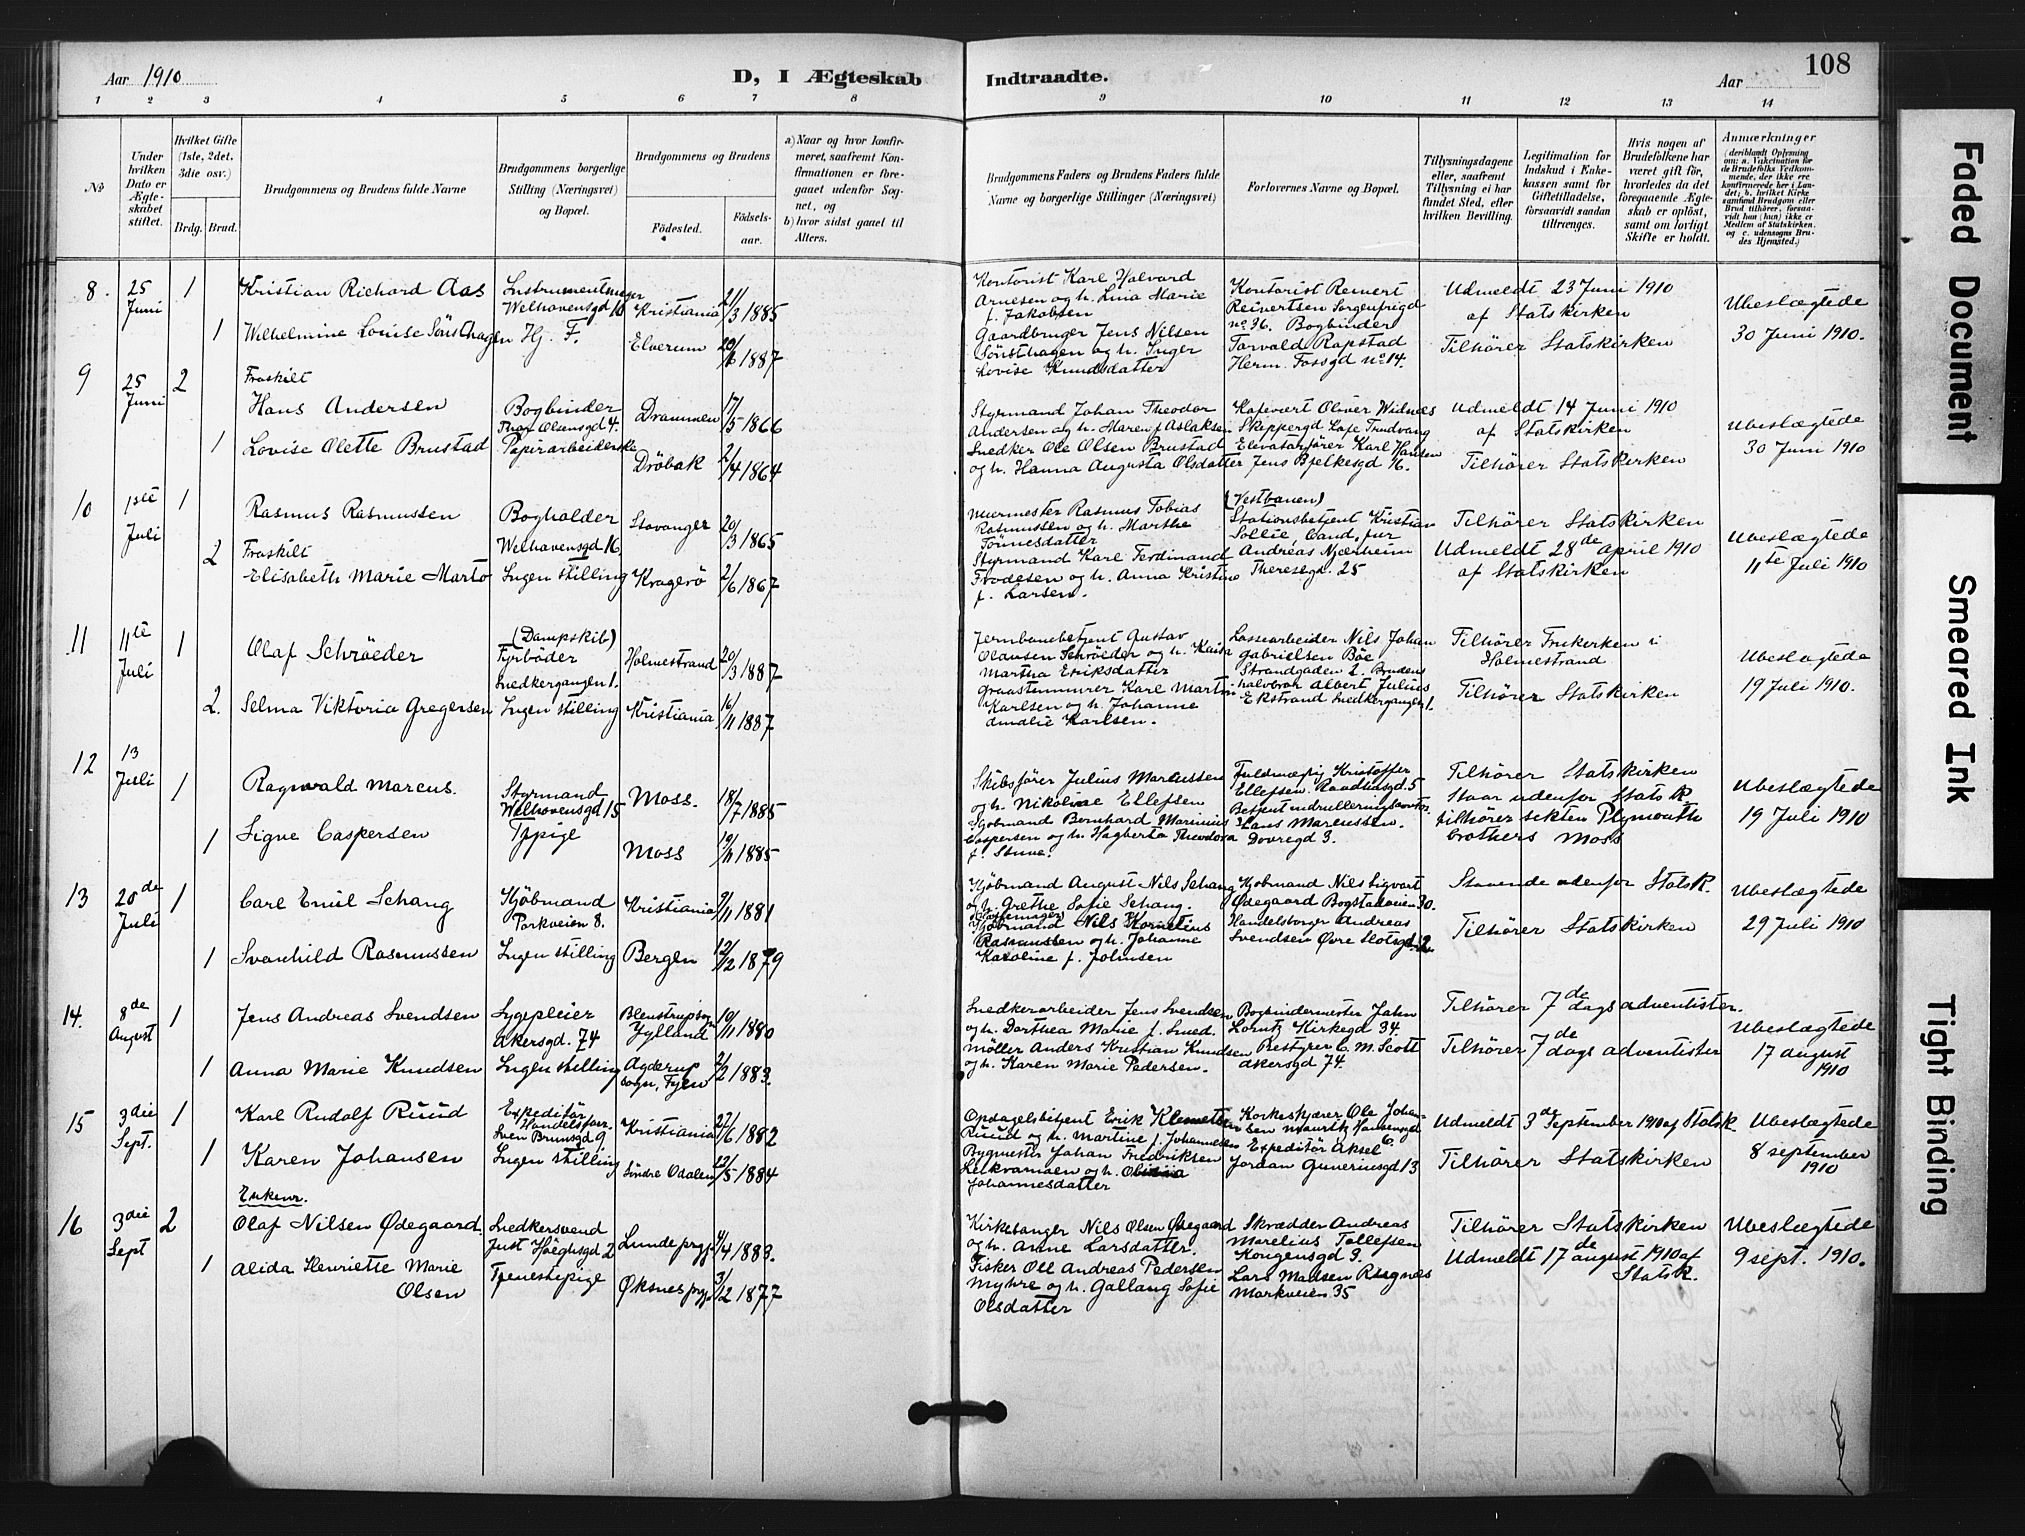 Aar 1910
D, I Ægteskab
Indtraadte.
Aar
108
1 2 3 4 5 6 7 8 9 10 11 12 13 14
No
Under hvilken Dato er Ægteskabet stiftet.
Hvilket Gifte (1ste, 2det, 3die osv.)
Brdg. Brud.
Brudgommens og Brudens fulde Navne
Brudgommens borgerlige Stilling (Næringsvei) og Bopæl.
Brudgommens og Brudens
Fødested.
Fødselsaar.
a) Naar og hvor konfirmeret, saafremt Konfirmationen er foregaaet udenfor Sognet, og
b) hvor sidst gaaet til Alters.
Brudgommens Faders og Brudens Faders fulde Navne og borgerlige Stillinger (Næringsvei)
Forlovernes Navne og Bopæl.
Tillysningsdagene eller, saafremt Tillysning ei har fundet Sted, efter hvilken Bevilling.
Legitimation for Indskud i Enkekassen samt for Giftetilladelse, forsaavidt saadan tiltrænges.
Hvis nogen af Brudefolkene har været gift før, hvorledes da det foregaaende Ægteskab er opløst, samt om lovligt Skifte er holdt.
Anmærkninger (deriblandt Oplysning om: a. Vakcination for de Brudefolks Vedkommende, der ikke ere konfirmerede her i Landet; b. hvilket Kirkesamfund Brudgom eller Brud tilhører, forsaavidt han (hun) ikke er Medlem af Statskirken, og c. udensogns Brudes Hjemsted.)
8. 25 Juni 1 Kristian Richard Aas Instrumentmager Welhavensgd 16 Kristiania 21/3 1885
1 Wilhelmine Louise Sønsthagen Hj. F. Elverum 20/6 1887
Kontorist Karl Halvard
Arnesen og h. Lina Marie
f. Jakobsen
Gaardbruger Jens Nilsen
Sønsthagen og h. Inger
Lovise Knudsdatter
Kontorist Reinert
Reivertsen Sorgenfrigd
no. 36. Bogbinder
Torvald Rapstad
Herm. Fossgd no. 14.
Udmeldt 23 Juni 1910
af Statskirken
Tilhører Statskirken
Ubeslægtede
30 Juni 1910.
9 25 Juni 2 Fraskilt
Hans Andersen Bogbinder Thor Olsensgd 4. Drammen 17/5 1866
1 Lovise Olette Brustad Papirarbeiderske Drøbak 2/4 1864
Styrmand Johan Theodor
Andersen og h. Maren f. Aslaksen
Snedker Ole Olsen Brustad
og h. Hanna Augusta Olsdatter
Kafevert Oliver Widnes
Skippergd Kafe Trudvang
Elevatorfører Karl Hansen
Jens Bjelkesgd 16.
Udmeldt 14 Juni 1910
af Statskirken
Tilhører Statskirken
Ubeslægtede
30 Juni 1910
10 1ste Juli 1 Rasmus Rasmussen Bogholder Welhavensgd 16 Stavanger 20/3 1865
2 Fraskilt
Elisabeth Marie Martø Ingen stilling Kragerø 2/6 1867
Murmester Rasmus Tobias
Rasmussen og h. Marthe
Tønnesdatter
Styrmand Karl Ferdinand
Frodesen og h. Anna Kristine
f. Larsen.
(Vestbanen)
Stationsbetjent Kristian
Sollie, Cand. jur
Andreas Njerheim
Theresegd. 25
Tilhører Statskirken
Udmeldt 28de April 1910
af Statskirken
Ubeslægtede
11te Juli 1910
11 11te Juli 1 Olaf Schrøeder (Dampskib) Fyrbøder Snedkergangen 1. Holmestrand 20/3 1887
2. Selma Viktoria Gregersen Ingen stilling Kristiania 16/11 1887
Jernbanebetjent Gustav
Olausen Schrøeder og h. Kaisa
Martha Eriksdatter
Graastenmurer Karl Martin
Karlsen og h. Johanne
Amalie Karlsen.
Lossearbeider Nils Johan
Gabrielsen Bøe
Strandgaden 2. Brudens
halvbror Albert Julius
Ekstrand Snedkergangen 1.
Tilhører Frikirken i
Holmestrand
Tilhører Statskirken
Ubeslægtede
19 Juli 1910.
12 13 Juli 1 Ragnvald Marcus. Styrmand Welhavensgd 15 Moss. 18/7 1885
1 Signe Caspersen Tppige Moss 19/11 1885
Skibsfører Julius Marcussen
og h. Nikoline Ellefsen
Sjøbmand Bernhard Marinius
Caspersen og h. Hagberta Theodora
f. Stune.
Fuldmægtig Kristoffer
Ellefsen. Raadhusgd. 5
Betjent indrulleringskontor.
Hans Marcussen.
Dovregd 3.
Tilhører Statskirken
Staar udenfor StatsK
tilhører sekten Plymouth
brothers Moss
Ubeslægtede
19 Juli 1910
13 20de Juli 1 Carl Emil Schang Kjøbmand Parkveien 8. Kristiania 9/11 1881
1 Svanhild Rasmussen Ingen stilling Bergen 12/12 1879
Kjøbmand August Nils Schang
og h. Grethe Sofie Schang.
Kjøbmand Nils Kornelius
Rasmussen og h. Johanne
Karoline f. Johnsen
Kjøbmand Nils Sigvart
Ødegaard Bogstadveien 30.
Handelsborger Andreas
Svendsen Øvre Slotsgd. 12
Staaende udenfor StatsK.
Tilhører Statskirken
Ubeslægtede
29 Juli 1910
14. 8de August 1 Jens Andreas Svendsen Sygepleier Akersgd. 74 Blenstrup sogn Jylland 19/11 1880
1 Anna Marie Knudsen Ingen stilling Agderup sogn, Fyen 2/2 1883.
Snedkerarbeider Jens Svendsen
og h. Dorthea Marie f. Smed.
Møller Anders Kristian Knudsen
og h. Karen Marie Pedersen.
Bogbindermester John
Lorntz Kirkegd 34.
Bestyrer C. M. Scott
Akersgd 74.
Tilhører 7de dags adventister.
Tilhører 7de dags adventister
Ubeslægtede
17 august
1910
15 3die Sept. 1 Karl Rudolf Ruud Expeditør Handelsfor. Sven Brunsgd 9 Kristiania 27/6 1882
1 Karen Johansen Ingen stilling Søndre Odalen 22/5 1884
Opdagelsbetjent Erik Klemetsen
Ruud og h. Martine f. Johannesen
Bygmester Johan Fredriksen
og h.
Johannesdatter
Korkeskjærer Ole Johansen
Expeditør Aksel
Jordan Gunerius gd 13
Udmeldt 3de September 1910 af StatsK
Tilhører Statskirken
Ubeslægtede
8 september
1910
16 3die Sept 2 Enkem.
Olaf Nilsen Ødegaard. Snedkersvend Just Høeghsgd 2 Lunde prgj 4/4 1883.
1 Alida Henriette Marie
Olsen Tjenestepige Øksnes prgj 3/12 1877
Kirkesanger Nils Olsen Ødegaard
og h. Anne Larsdatter.
Fisker Ole Andreas Pedersen
Myhre og h. Gallang Sofie
Olsdatter
Skrædder Andreas
Marelius Tollefsen
Kongensgd 3.
Lars Madsen Rugnes
Markveien 35
Tilhører Statskirken
Udmeldt 17de august 1910 af
StatsK.
Ubeslægtede
9 sept. 1910.
Faded Document
Smeared Ink
Tight Binding